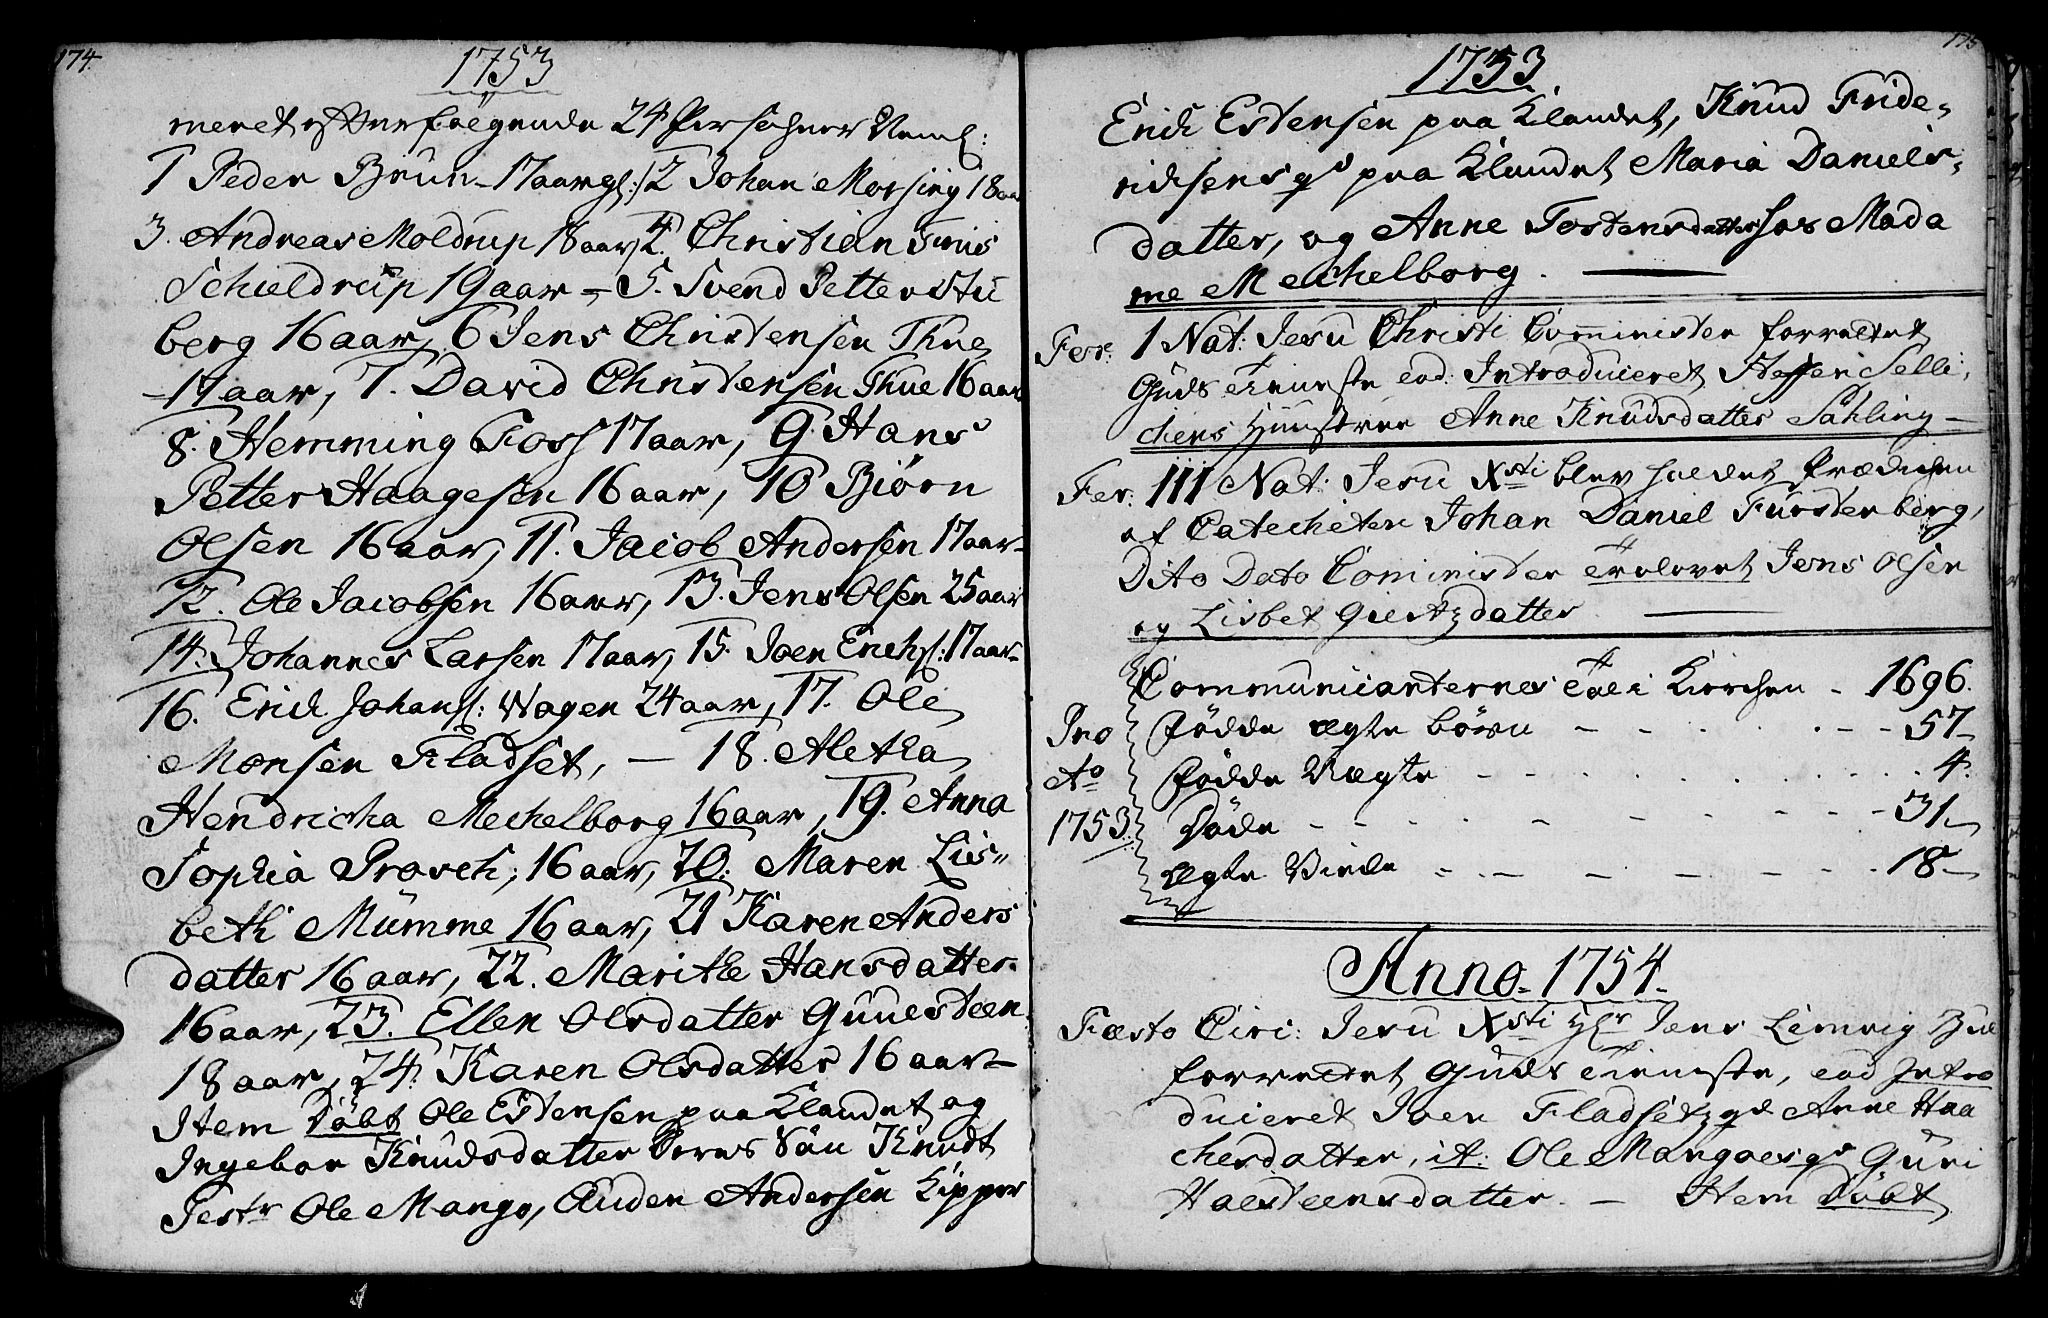 174.
1753
meret efterfølgende 24 Persohner Neml:
1 Peder Brun - 17 aar gl: 2 Johan Morsing 18 aar
3. Andreas Moldrup 18 aar, 4 Christian
Schieldrup 19 aar - 5. Svend Petter Stu
berg 16 aar, 6 Jens Christensen Thue
- 17 aar, 7. David Christensen Thue 16 aar
8. Hemming Foss 17 aar, 9. Hans
Petter Haagesen 16 aar, 10 Biørn
Olsen 16 aar, 11. Jacob Andersen 17 aar -
12. Ole Jacobsen 16 aar, 13. Jens Olsen 25 aar
14. Johannes Larsen 17 aar, 15. Joen Erichs: 17 aar -
16. Erich Johans: Wagen 24 aar, 17. Ole
Monsen Fladset, - 18. Aletha
Hendricha Mechelborg 16 aar, 19. Anna
Sophia Prosch, 16 aar, 20. Maren Lis„
beth Mumme 16 aar, 21 Karen Anders
datter 16 aar, 22. Marithe Hansdatter.
16 aar, 23. Ellen Olsdatter
18 aar, 24. Karen Olsdatter 16 aar -
Item Døbt Ole Estensen paa Landet og
Ingebor Knudsdatter deres Søn Knudt
Testr Ole Mango, Auden Andersen
175
1753.
Erich Estensen paa Landet, Knud Fride„
richsens qd paa Landet Maria Daniels„
datter, og Anne Tostensdatter hos Mada
me Mechelborg. -
Fer: 1 Nat: Jesu Christi Comminister forrettet
Guds Tieneste eod: Introducieret Steffen Selli„
chens Hustrue Anne Knudsdatter Sahling -
Fer: III Nat: Jesu Xsti blev holdet Prædichen
af Catecheten Johan Daniel Fürstenberg,
Dito Dato Cominister trolovet Jens Olsen
og Lisbet Giertzdatter -
Communicanternes Tal i Kirchen - 1696.
Pro Fødde ægte børn - 57 -
Ao Fødde Uægte - 4.
1753. Døde - 31. -
ægte Viede - 18 -
Anno. 1754.
Fæsto Circ: Jesu Xsti Hr Jens Lemvig Bue
forrettet Guds Tieneste, eod Intro
ducieret Iver Fladsetz qd Anne Haa
chesdatter, it: Ole Mangoes qd Guri
Haesteensdatter. - Item Døbt